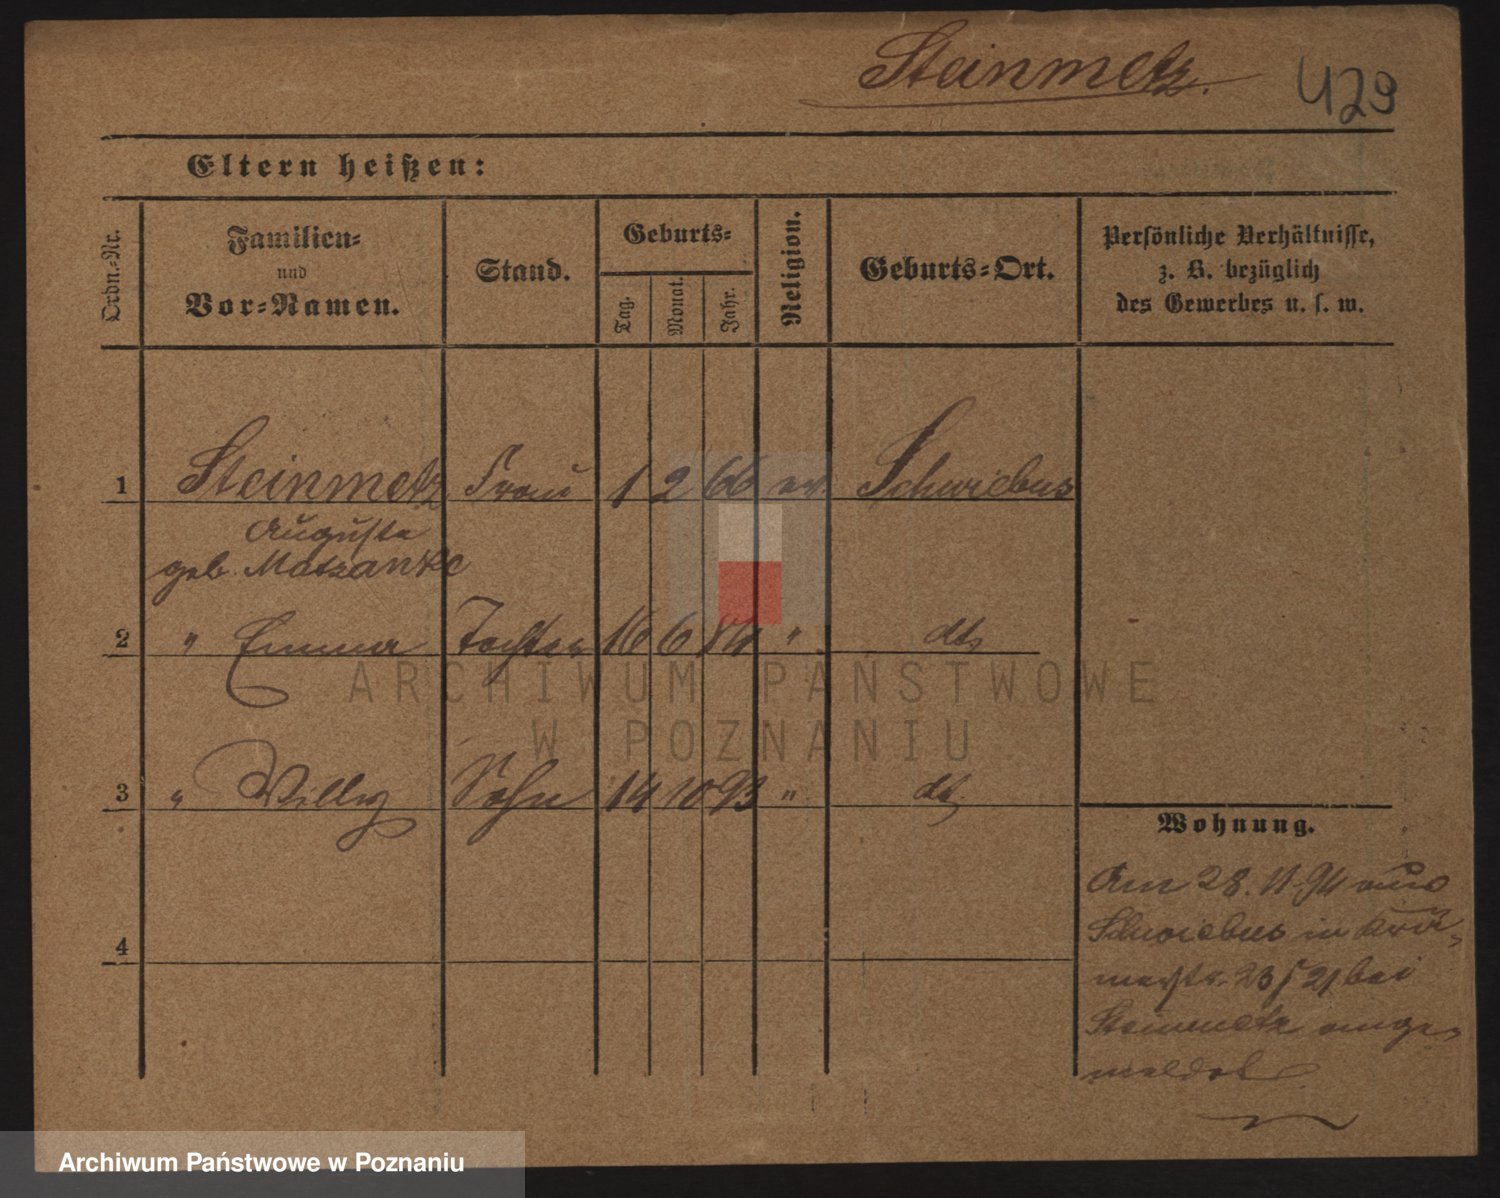 Steinmetz.
429
Eltern heißen:
Ordn.-Nr.
Familien-
und
Vor-Namen.
Stand.
Geburts-
Tag.
Monat.
Jahr.
Religion.
Geburts-Ort.
Persönliche Verhältnisse,
z. B. bezüglich
des Gewerbes u. s. w.
1 Steinmetz Frau 1 2 66 ev. Schwiebus
Auguste
geb. Matzanke
2 " Emma Tochter 16 6 84 " dto
3 " Willy Sohn 14 10 93 " dto
4
Wohnung.
Am 28. 11. 94 aus
Schwiebus in
23 / 21 bei
Steinmetz ange-
meldet
ARCHIWUM PAŃSTWOWE
W POZNANIU
Archiwum Państwowe w Poznaniu